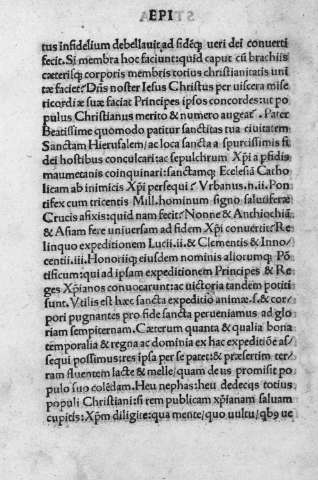 EPI
tus infidelium debellauit, ad fidēq; ueri dei conuerti
fecit. Si membra hoc faciunt: quid caput cū brachiis
cæterisq; corporis membris totius christianitatis uni
tæ faciet? Dn̄s noster Iesus Christus per uiscera mise
ricordiæ suæ faciat Principes ipsos concordes: ut po
pulus Christianus merito & numero augeať. Pater
Beatissime quomodo patitur sanctitas tua ciuitatem
Sanctam Hierusalem/ac loca sancta a spurcissimis fi
dei hostibus conculcari: ac sepulchrum Xp̄i a pfidis
maumetanis coinquinari: sanctamq; Ecclesiā Catho
licam ab inimicis Xp̄i persequi? Vrbanus .n. ii. Pon
tifex cum tricentis Mill. hominum signo saluiferæ
Crucis afixis: quid nam fecit? Nonne & Anchiochiā
& Asiam fere uniuersam ad fidem Xp̄i conuertit? Re
linquo expeditionem Lucii. ii. & Clementis & Inno/
centii. iii. Honoriiq; eiusdem nominis aliorumq; Pō
tificum: qui ad ipsam expeditionem Principes & Re
ges Xp̄ianos conuocarunt: ac uictoria tandem potiti
sunt. Vtilis est hæc sancta expeditio animæ. s. & cor/
pori pugnantes pro fide sancta perueniamus ad glo
riam sempiternam. Cæterum quanta & qualia bona
temporalia & regna ac dominia ex hac expeditiōe as/
sequi possimus: res ipsa per se patet: & præsertim ter/
ram fluentem lacte & melle/quam deus promisit po
pulo suo colēdam. Heu nephas: heu dedecus totius
populi Christiani: si rem publicam xp̄ianam saluam
cupitis: Xp̄m diligite: qua mente/quo uultu/qb9 ue